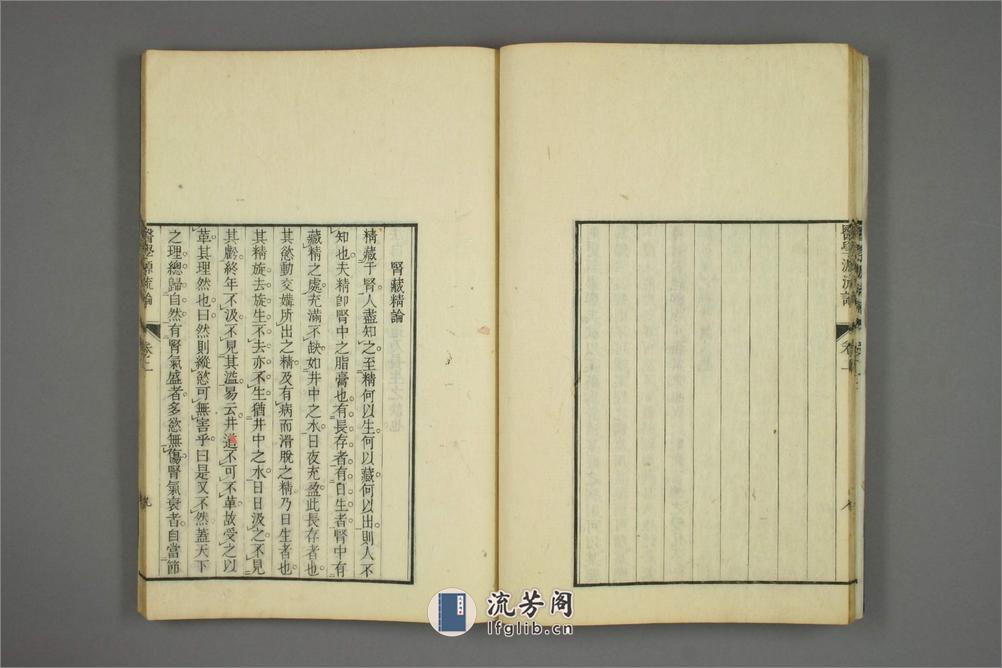 腎藏精論
精藏于腎人盡知之至精何以生何以藏何以出則人不
知也夫精卽腎中之脂膏也有長存者有日生者腎中有
藏精之處充滿不缺如井中之水日夜充盈此長存者也
其慾動交媾所出之精及有病而滑脫之精乃日生者也
其精旋去旋生不去亦不生猶井中之水日日汲之不見
其虧終年不汲不見其溢易云井道不可不革故受之以
革其理然也曰然則縱慾可無害乎曰是又不然蓋天下
之理總歸自然有腎氣盛者多慾無傷腎氣衰者自當節
醫學源流論
卷上
九
醫學源流論
流芳阁
lfglib.cn